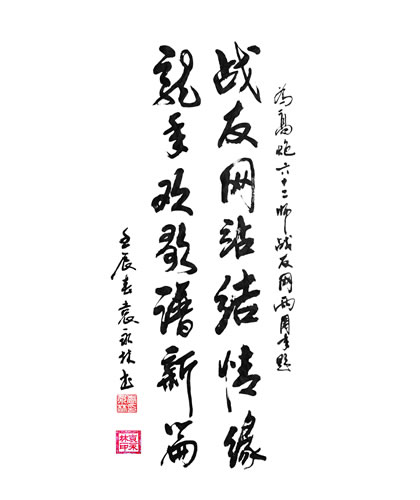 為高炮六十二师战友网两周年题
战友网站结情缘
龍年欢歌谱新篇
壬辰春袁永林书
袁永林印